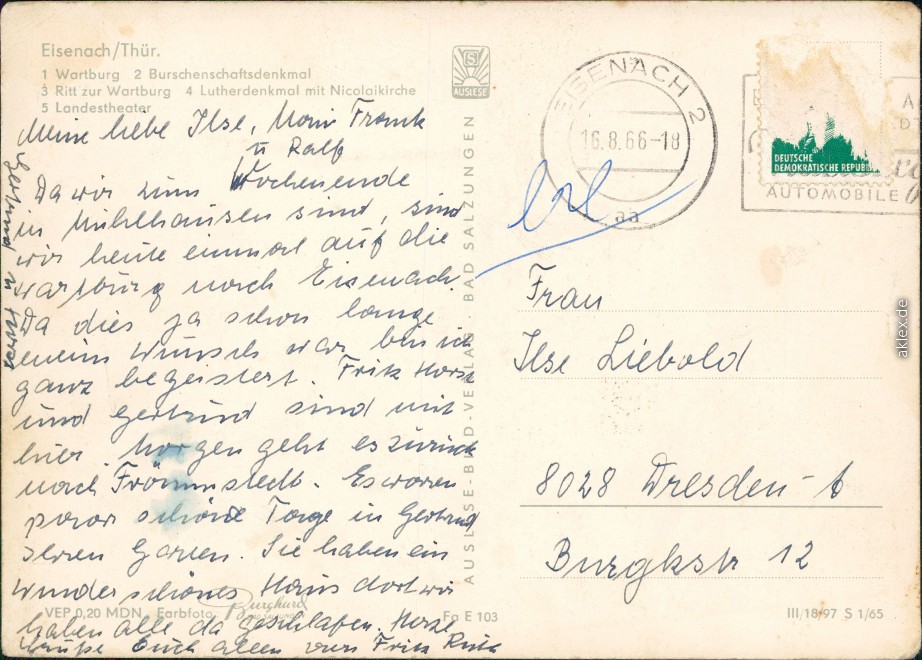 Eisenach/Thür.
1 Wartburg 2 Burschenschaftsdenkmal
3 Ritt zur Wartburg 4 Lutherdenkmal mit Nicolaikirche
5 Landestheater
AUSLESE
Meine liebe Ilse, Frank
u Ralf
Da wir zum Wochenende
in Mühlhausen sind, sind
wir heute einmal auf die
Wartburg nach Eisenach.
Da dies ja schon lange
ein Wunsch war, bin ich
ganz begeistert. Fritz Horst
und Gertrud sind mit
hier. Morgen geht es zurück
nach Frömmstedt. Es waren
paar schöne Tage in Gertrud
ihren Garten. Sie haben ein
wunderschönes Haus dort wir
haben alle da geschlafen. Herzl
Grüße Euch allen von Fritz Ruth
Gertrud u Horst
VEP 0,20 MDN Farbfoto Burghard
Fo E 103
AUSLESE-BILD-VERLAG · BAD SALZUNGEN
EISENACH 2
16.8.66-18
aa
DEUTSCHE
DEMOKRATISCHE REPUBLIK
AUTOMOBILE
Frau
Ilse Liebold
8028 Dresden-A
Burgkstr 12
III/18-97 S 1/65
aklex.de